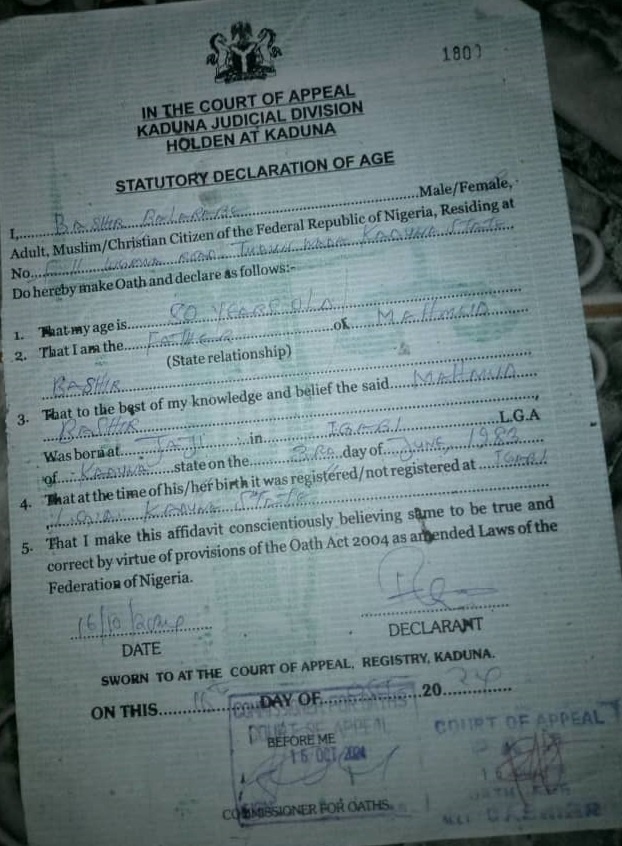 1809
IN THE COURT OF APPEAL
KADUNA JUDICIAL DIVISION
HOLDEN AT KADUNA
STATUTORY DECLARATION OF AGE
I,......BASHIR ......Male/Female,
Adult, Muslim/Christian Citizen of the Federal Republic of Nigeria, Residing at
No... ROAD TUDUN WADA KADUNA STATE
Do hereby make Oath and declare as follows:-
1. That my age is......80 YEARS OLD
2. That I am the......FATHER......of......MAHMUD
(State relationship)
BASHIR
3. That to the best of my knowledge and belief the said......MAHMUD
BASHIR
Was born at......JAJI......in......IGABI......L.G.A
of......KADUNA......state on the......3RD...day of...JUNE, 1983
4. That at the time of his/her birth it was registered/not registered at......IGABI
L.G.A KADUNA STATE
5. That I make this affidavit conscientiously believing same to be true and
correct by virtue of provisions of the Oath Act 2004 as amended Laws of the
Federation of Nigeria.
16/10/2024
DATE
DECLARANT
SWORN TO AT THE COURT OF APPEAL, REGISTRY, KADUNA.
ON THIS......16......DAY OF......20...24
COURT OF APPEAL
BEFORE ME
16 OCT 2024
COMMISSIONER FOR OATHS
COURT OF APPEAL